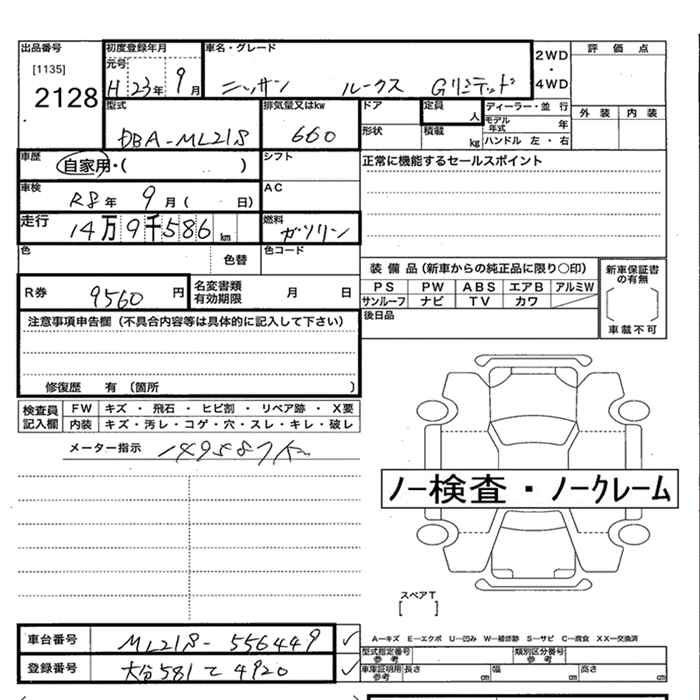 出品番号 [1135] 2128
初度登録年月 元号 H 23年 9月
車名・グレード ニッサン ルークス Gリミテッド
2WD・4WD
評価点 外装 内装
型式 DBA-ML21S
排気量又はkw 660
ドア 形状
定員 人 積載 kg
ディーラー・並行
モデル年式 年
ハンドル 左・右
車歴 自家用・( )
シフト
正常に機能するセールスポイント
車検 R8年 9月( 日)
AC
走行 14万9千586km
燃料 ガソリン
色 色替 色コード
装備品(新車からの純正品に限り○印)
PS PW ABS エアB アルミW
サンルーフ ナビ TV カワ
新車保証書の有無
車載不可
R券 9560円
名変書類有効期限 月 日
後日品
注意事項申告欄(不具合内容等は具体的に記入して下さい)
修復歴 有(箇所 )
検査員記入欄
FW キズ・飛石・ヒビ割・リペア跡・X要
内装 キズ・汚レ・コゲ・穴・スレ・キレ・破レ
メーター指示 149587K
ノー検査・ノークレーム
スペアT
[ ]
A―キズ E―エクボ U―凹み W―補修跡 S―サビ C―腐食 XX―交換済
車台番号 ML21S-556449 ✓
登録番号 大分581て4920 ✓
型式指定番号 参考
類別区分番号 参考
車庫証明用 参考 長さ cm 幅 cm 高さ cm